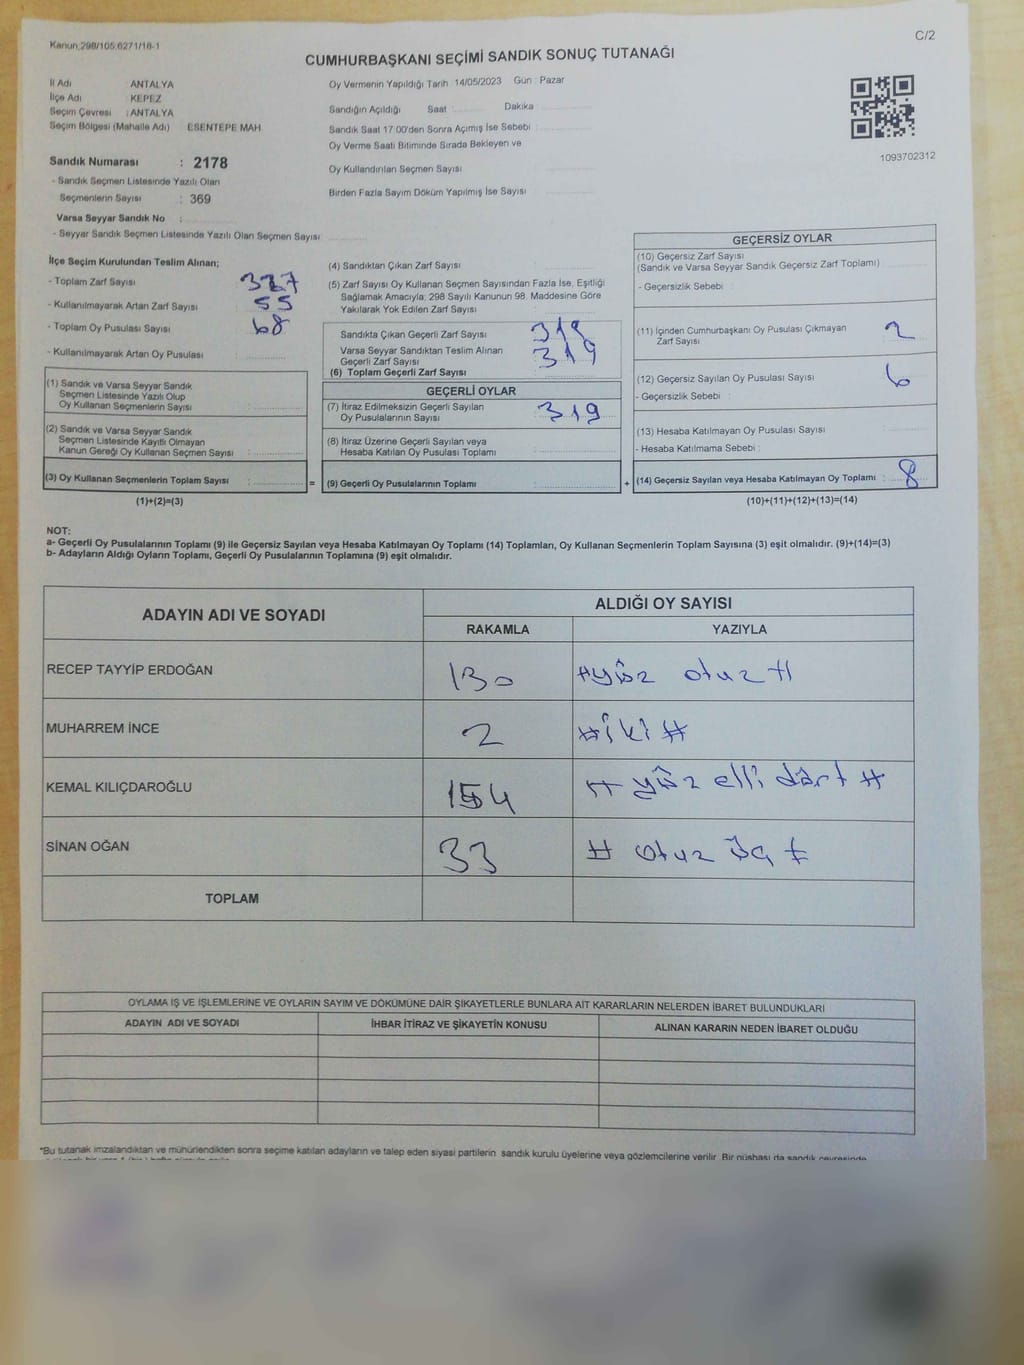 Kanun:298/105,6271/18-1
C/2
CUMHURBAŞKANI SEÇİMİ SANDIK SONUÇ TUTANAĞI
İl Adı ANTALYA
İlçe Adı KEPEZ
Seçim Çevresi : ANTALYA
Seçim Bölgesi (Mahalle Adı) ESENTEPE MAH
Sandık Numarası : 2178
- Sandık Seçmen Listesinde Yazılı Olan
Seçmenlerin Sayısı : 369
Varsa Seyyar Sandık No :
- Seyyar Sandık Seçmen Listesinde Yazılı Olan Seçmen Sayısı
Oy Vermenin Yapıldığı Tarih 14/05/2023 Gün : Pazar
Sandığın Açıldığı Saat : Dakika
Sandık Saat 17:00'den Sonra Açımış İse Sebebi :
Oy Verme Saati Bitiminde Sırada Bekleyen ve
Oy Kullandırılan Seçmen Sayısı
Birden Fazla Sayım Döküm Yapılmış İse Sayısı
1093702312
İlçe Seçim Kurulundan Teslim Alınan;
- Toplam Zarf Sayısı 327
- Kullanılmayarak Artan Zarf Sayısı 55
- Toplam Oy Pusulası Sayısı 68
- Kullanılmayarak Artan Oy Pusulası :
(1) Sandık ve Varsa Seyyar Sandık
Seçmen Listesinde Yazılı Olup
Oy Kullanan Seçmenlerin Sayısı :
(2) Sandık ve Varsa Seyyar Sandık
Seçmen Listesinde Kayıtlı Olmayan
Kanun Gereği Oy Kullanan Seçmen Sayısı :
(3) Oy Kullanan Seçmenlerin Toplam Sayısı :
(1)+(2)=(3)
=
(4) Sandıktan Çıkan Zarf Sayısı
(5) Zarf Sayısı Oy Kullanan Seçmen Sayısından Fazla İse, Eşitliği
Sağlamak Amacıyla; 298 Sayılı Kanunun 98. Maddesine Göre
Yakılarak Yok Edilen Zarf Sayısı :
Sandıkta Çıkan Geçerli Zarf Sayısı 319
Varsa Seyyar Sandıktan Teslim Alınan
Geçerli Zarf Sayısı 319
(6) Toplam Geçerli Zarf Sayısı
GEÇERLİ OYLAR
(7) İtiraz Edilmeksizin Geçerli Sayılan
Oy Pusulalarının Sayısı 319
(8) İtiraz Üzerine Geçerli Sayılan veya
Hesaba Katılan Oy Pusulası Toplamı
(9) Geçerli Oy Pusulalarının Toplamı :
+
GEÇERSİZ OYLAR
(10) Geçersiz Zarf Sayısı
(Sandık ve Varsa Seyyar Sandık Geçersiz Zarf Toplamı)
- Geçersizlik Sebebi :
(11) İçinden Cumhurbaşkanı Oy Pusulası Çıkmayan
Zarf Sayısı 2
(12) Geçersiz Sayılan Oy Pusulası Sayısı 6
- Geçersizlik Sebebi :
(13) Hesaba Katılmayan Oy Pusulası Sayısı
- Hesaba Katılmama Sebebi :
(14) Geçersiz Sayılan veya Hesaba Katılmayan Oy Toplamı : 8
(10)+(11)+(12)+(13)=(14)
NOT:
a- Geçerli Oy Pusulalarının Toplamı (9) ile Geçersiz Sayılan veya Hesaba Katılmayan Oy Toplamı (14) Toplamları, Oy Kullanan Seçmenlerin Toplam Sayısına (3) eşit olmalıdır. (9)+(14)=(3)
b- Adayların Aldığı Oyların Toplamı, Geçerli Oy Pusulalarının Toplamına (9) eşit olmalıdır.
ADAYIN ADI VE SOYADI
ALDIĞI OY SAYISI
RAKAMLA YAZIYLA
RECEP TAYYİP ERDOĞAN 130 #yüz otuz#
MUHARREM İNCE 2 #iki#
KEMAL KILIÇDAROĞLU 154 # yüz elli dört #
SİNAN OĞAN 33 # otuz üç #
TOPLAM
OYLAMA İŞ VE İŞLEMLERİNE VE OYLARIN SAYIM VE DÖKÜMÜNE DAİR ŞİKAYETLERLE BUNLARA AİT KARARLARIN NELERDEN İBARET BULUNDUKLARI
ADAYIN ADI VE SOYADI İHBAR İTİRAZ VE ŞİKAYETİN KONUSU ALINAN KARARIN NEDEN İBARET OLDUĞU
*Bu tutanak imzalandıktan ve mühürlendikten sonra seçime katılan adayların ve talep eden siyasi partilerin sandık kurulu üyelerine veya gözlemcilerine verilir. Bir nüshası da sandık çevresinde